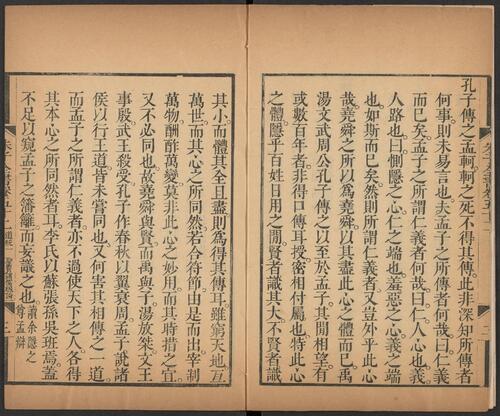 孔子傳之孟軻軻之死不得其傳此非深知所傳者
何事則未易言也夫孟子之所傳者何哉曰仁義而
已矣孟子之所謂仁義者何哉曰仁人心也義
人路也曰惻隱之心仁之端也羞惡之心義之端
也如斯而已矣然則所謂仁義者又豈外乎此心
哉堯舜之所以為堯舜以其盡此心之體而已禹
湯文武周公孔子傳之以至於孟子其間相望有
或數百年者非得口傳耳授密相付屬也特此心
之體隱乎百姓日用之間賢者識其大不賢者識
其小而體其全且盡則為得其傳耳雖窮天地亙
萬世而其心之所同然若合符節由是而出宰制
萬物酬酢萬變莫非此心之妙用而其時措之宜
又不必同也故堯舜與賢而禹與子湯放桀文王
事殷武王殺受孔子作春秋以翼衰周孟子說諸
侯以行王道皆未嘗同也又何害其相傳之一道
而孟子之所謂仁義者亦不過使天下之人各得
其本心之所同然者耳李氏以蘇張孫吳班焉蓋
不足以窺孟子之籓籬而妄議之也讀余隱之
尊孟辯